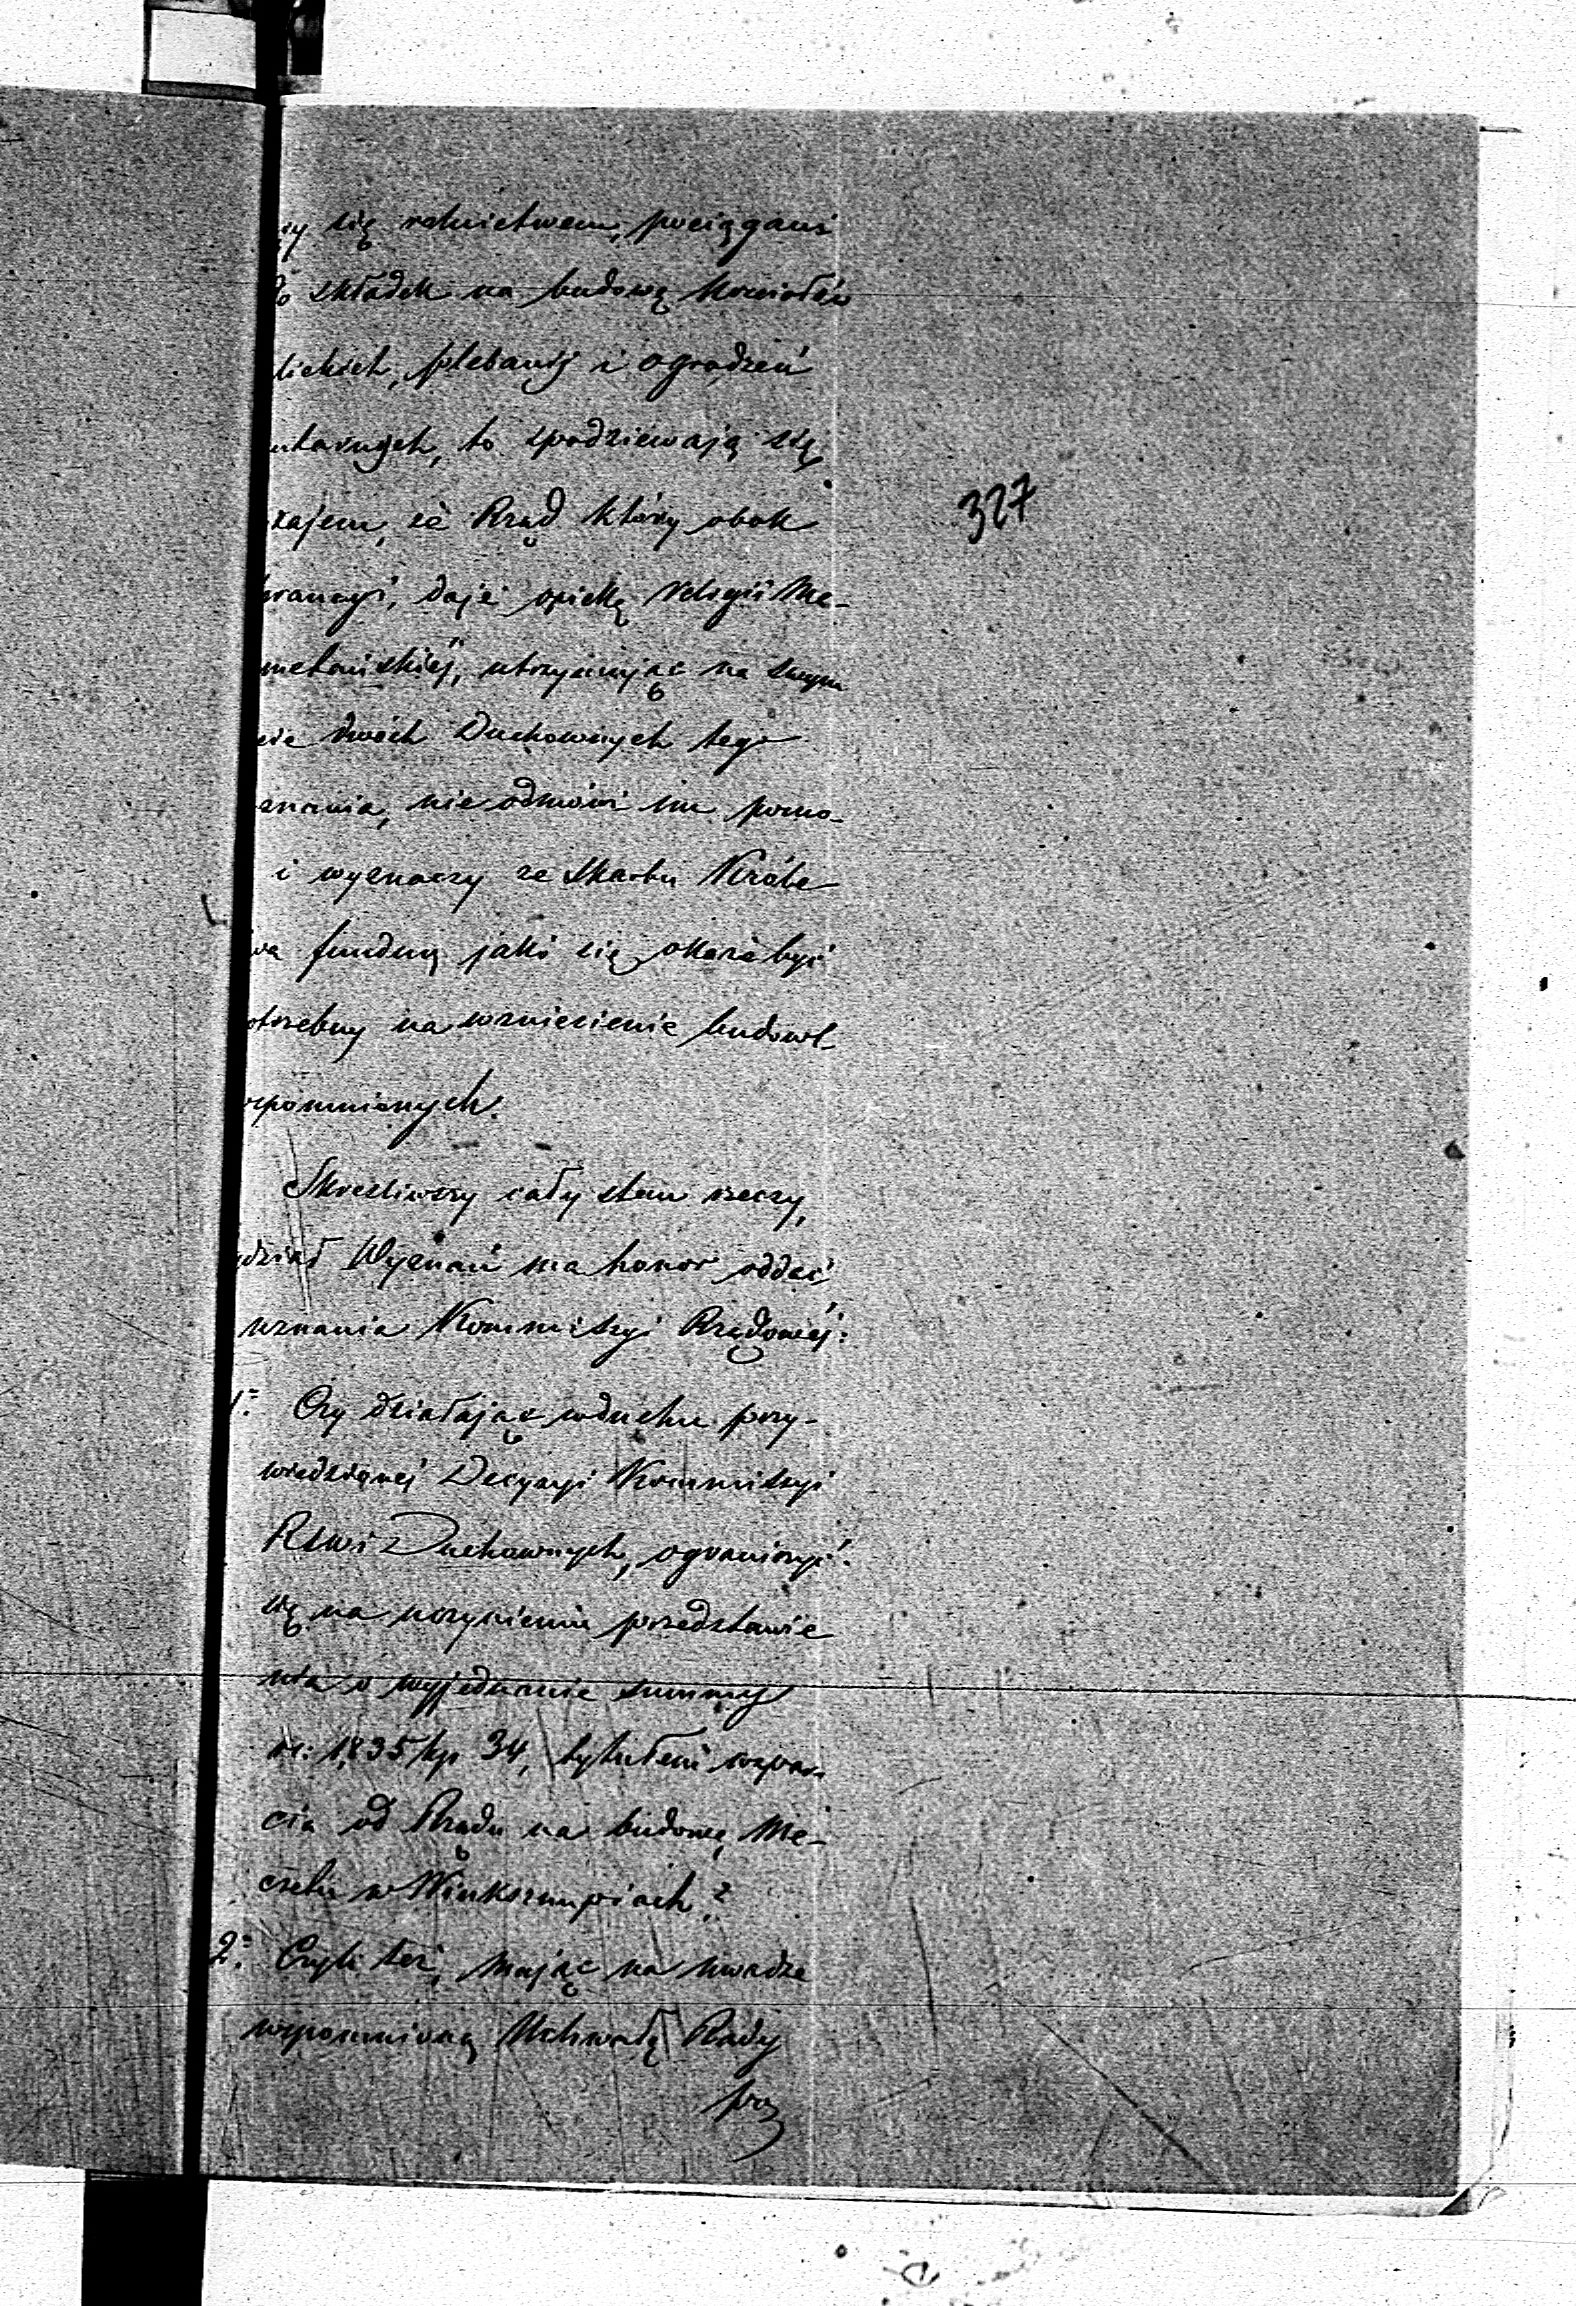 się rolnictwem, pociągani
do składek na budowę kościołów
lickich, plebanij i ogrodzeń
ntarnych, to spodziewają się
zajem, że Rząd który obok
daje opiekę Religii Ma-
metańskiej, utrzymując na swym
cie dwóch Duchownych tego
znania, nie odmówi im pomo-
i wyznaczy ze Skarbu Króle
wa fundusz jaki się okaże być
otrzebny na wzniesienie budowl
spomnionych.
Skreśliwszy cały stan rzeczy,
ydział Wyznań ma honor oddać
uznania Kommissyi Rządowej:
327
1.° Czy działając w duchu przy-
wiedzionej Decyzyi Kommissyi
RSWi Duchownych, ograniczyć
się na uczynieniu przedstawie
nia o wyjednanie summy
rs: 1,835 kp 34, tytułem wspar-
cia od Rządu na budowę Me-
czetu w Winksznupiach?
2.° Czyli też, mając na uwadze
wspomnioną Uchwałę Rady